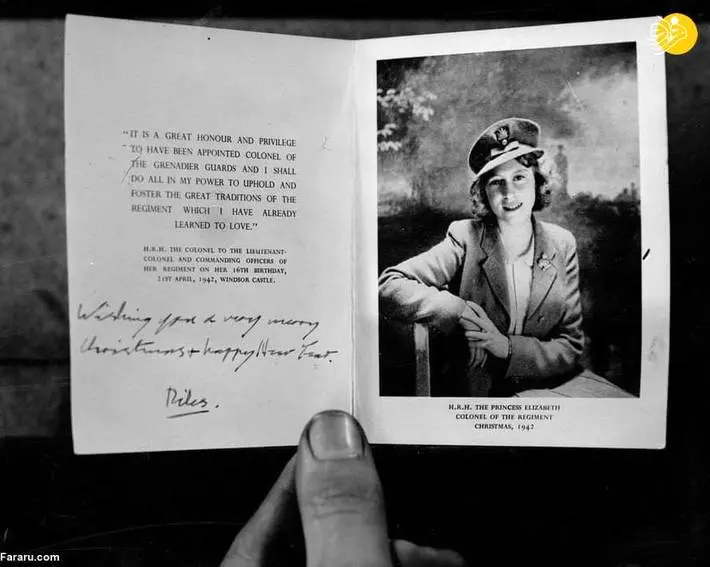 "IT IS A GREAT HONOUR AND PRIVILEGE
TO HAVE BEEN APPOINTED COLONEL OF
THE GRENADIER GUARDS AND I SHALL
DO ALL IN MY POWER TO UPHOLD AND
FOSTER THE GREAT TRADITIONS OF THE
REGIMENT WHICH I HAVE ALREADY
LEARNED TO LOVE."
H.R.H. THE COLONEL TO THE LIEUTENANT-
COLONEL AND COMMANDING OFFICERS OF
HER REGIMENT ON HER 16TH BIRTHDAY,
21ST APRIL, 1942, WINDSOR CASTLE.
Wishing you a very merry
Christmas + happy New Year.
H.R.H. THE PRINCESS ELIZABETH
COLONEL OF THE REGIMENT
CHRISTMAS, 1942
Fararu.com